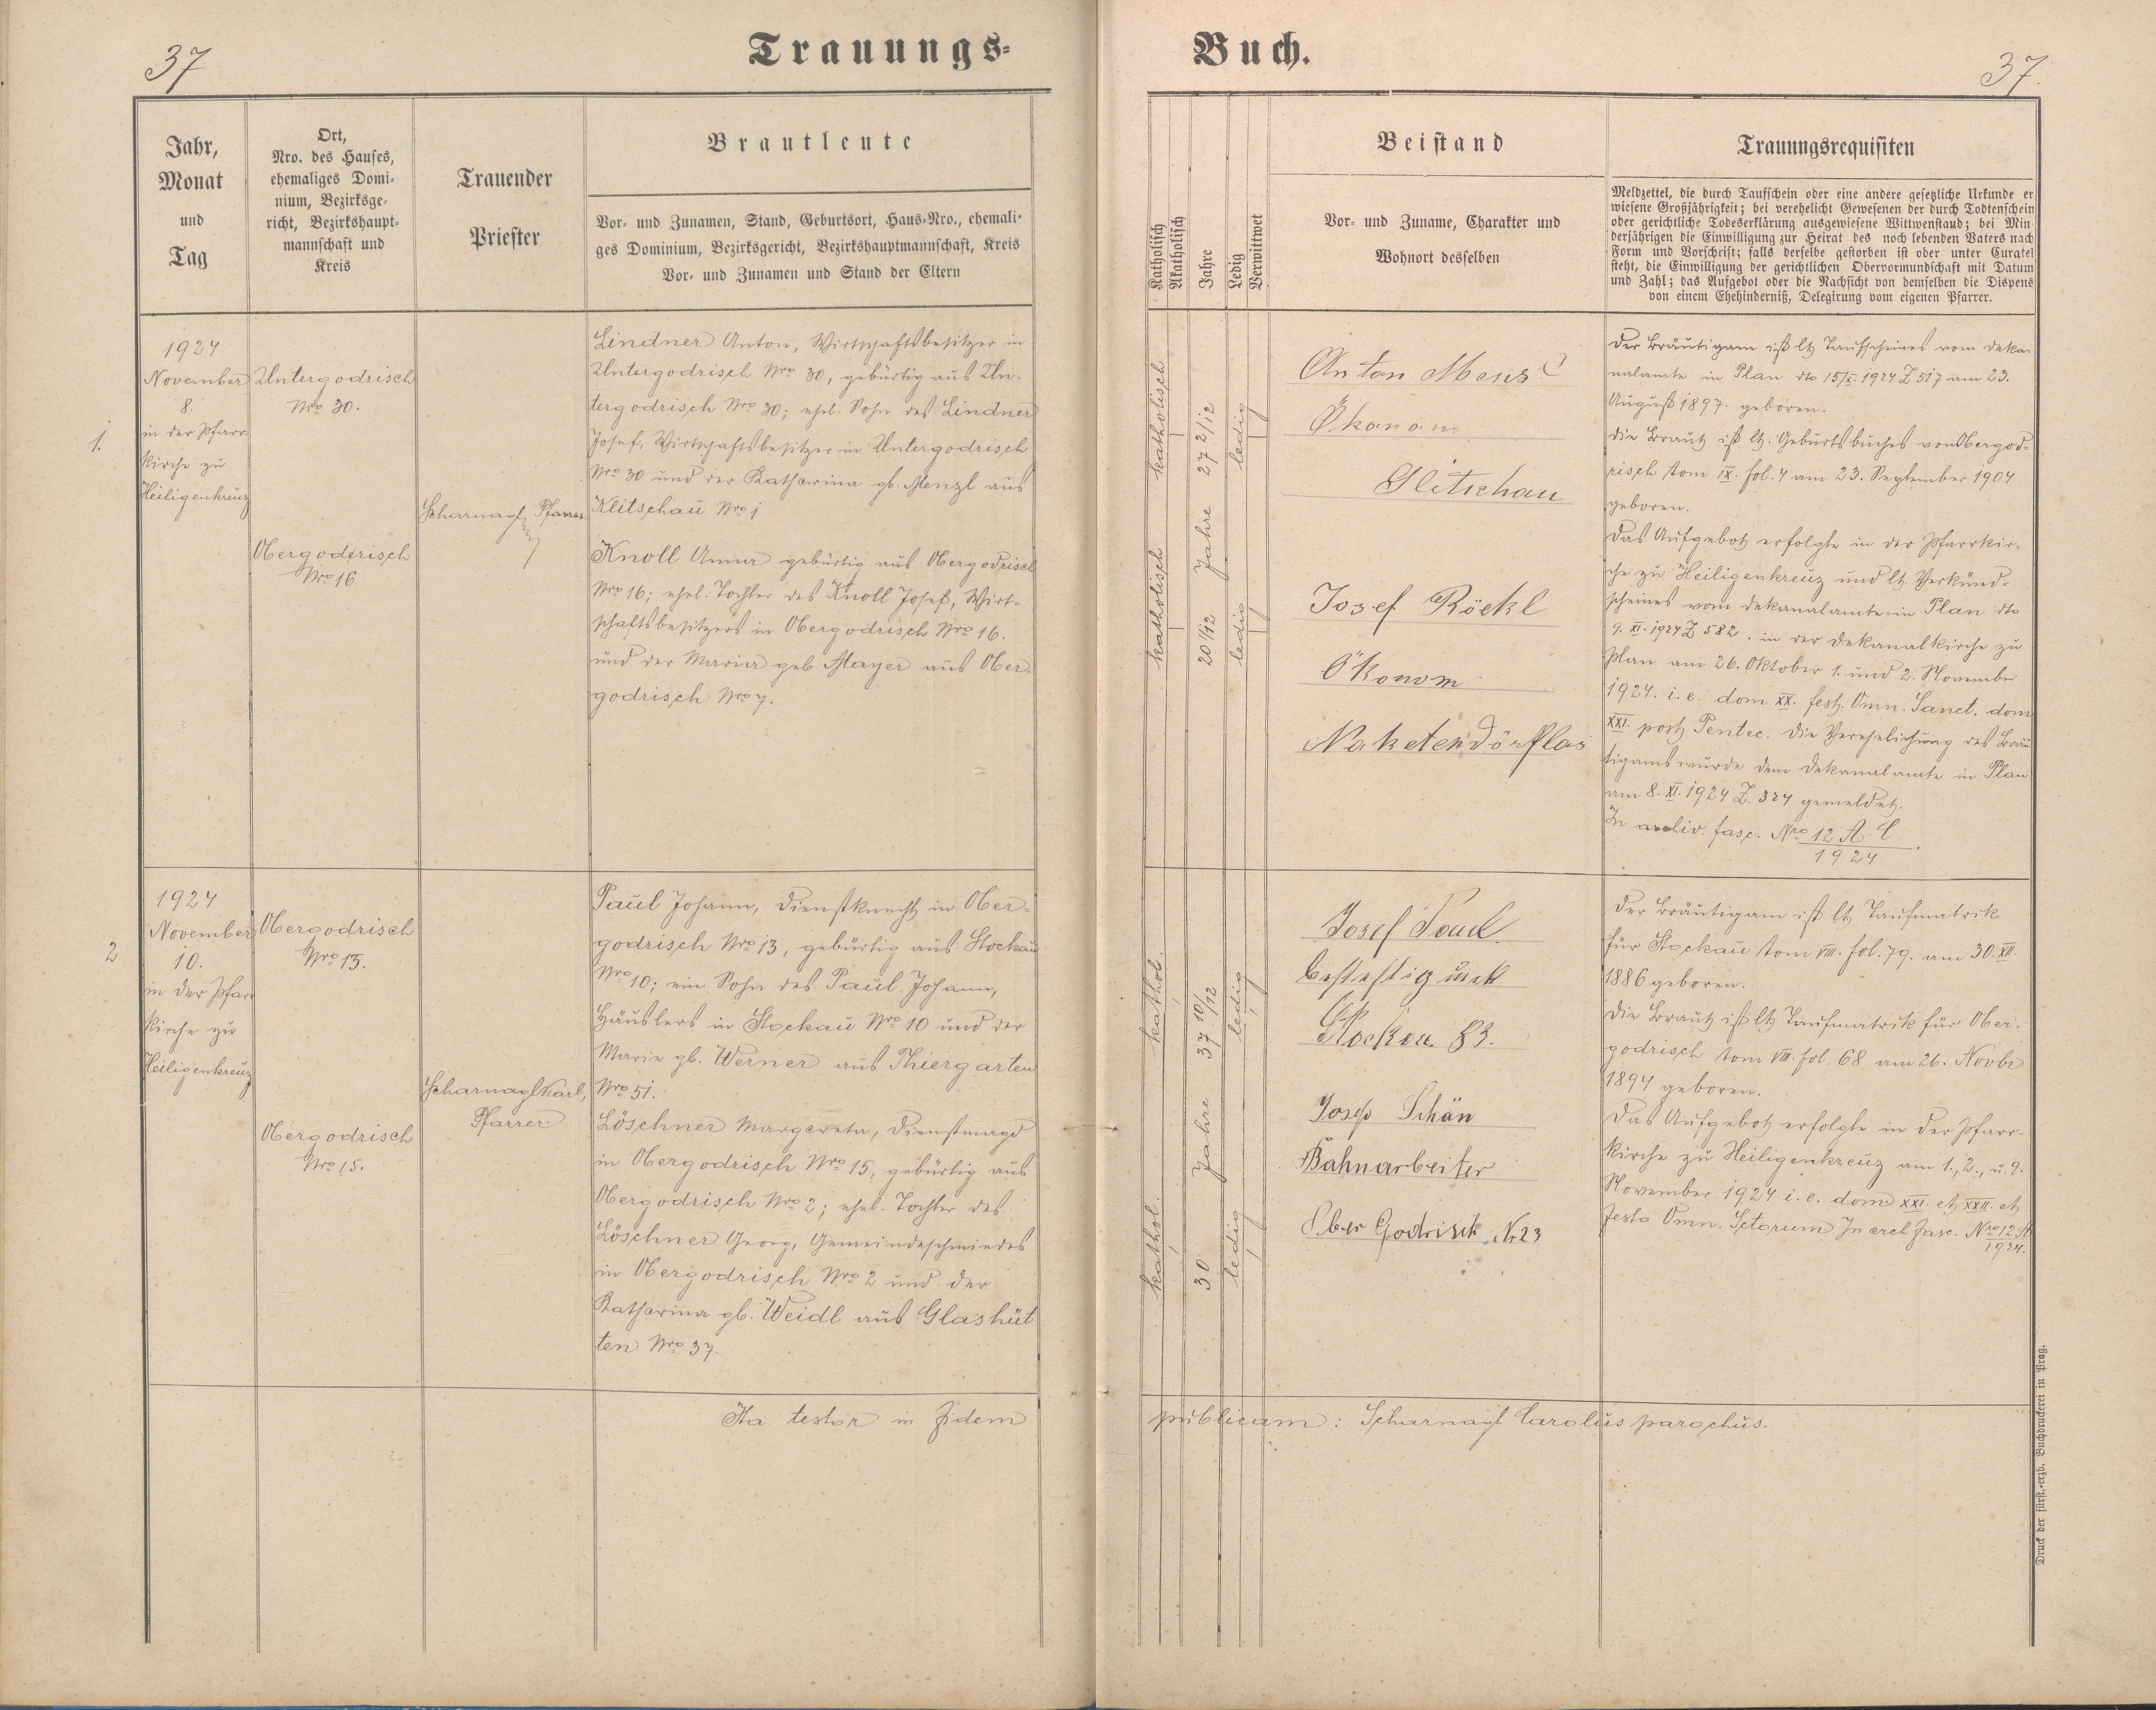 37
Trauungs-
Jahr,
Monat
und
Tag
Ort,
Nro. des Hauses,
ehemaliges Domi-
nium, Bezirksge-
richt, Bezirkshaupt-
mannschaft und
Kreis
Trauender
Priester
Brautleute
Vor- und Zunamen, Stand, Geburtsort, Haus-Nro., ehemali-
ges Dominium, Bezirksgericht, Bezirkshauptmannschaft, Kreis
Vor- und Zunamen und Stand der Eltern
1.
1924
November
8.
in der Pfarr-
kirche zu
Heiligenkreuz
Untergodrisch
Nro 30.
Obergodrisch
Nro 16
Scharnagl, Pfarrer
Lindner Anton, Wirtschaftsbesitzer in
Untergodrisch Nro 30, gebürtig aus Un-
tergodrisch Nro 30; ehel. Sohn des Lindner
Josef, Wirtschaftsbesitzer in Untergodrisch
Nro 30 und der Katharina gb. Menzl aus
Klitschau Nro 1
Knoll Anna gebürtig aus Obergodrisch
Nro 16; ehel. Tochter des Knoll Josef, Wirt-
schaftsbesitzers in Obergodrisch Nro 16.
und der Maria geb. Mayer aus Ober-
godrisch Nro 7.
2
1924
November
10.
in der Pfarr
kirche zu
Heiligenkreuz
Obergodrisch
Nro 13.
Obergodrisch
Nro 15.
Scharnagl Karl,
Pfarrer
Paul Johann, Dienstknecht in Ober-
godrisch Nro 13, gebürtig aus Stockau
Nro 10; ein Sohn des Paul Johann,
Häuslers in Stockau Nro 10 und der
Marie gb. Werner aus Thiergarten
Nro 51.
Löschner Margareta, Dienstmagd
in Obergodrisch Nro 15, gebürtig aus
Obergodrisch Nro 2; ehel. Tochter des
Löschner Georg, Gemeindeschmiedes
in Obergodrisch Nro 2 und der
Katharina gb. Weidl aus Glashüt
ten Nro 37.
Ita testor in fidem
Buch.
37.
Katholisch
Akatholisch
Jahre
Ledig
Verwittwet
Beistand
Vor- und Zuname, Charakter und
Wohnort desselben
Trauungsrequisiten
Meldzettel, die durch Taufschein oder eine andere gesetzliche Urkunde er
wiesene Großjährigkeit; bei verehelicht Gewesenen der durch Todtenschein
oder gerichtliche Todeserklärung ausgewiesene Wittwenstand; bei Min
derjährigen die Einwilligung zur Heirat des noch lebenden Vaters nach
Form und Vorschrift; falls derselbe gestorben ist oder unter Curatel
steht, die Einwilligung der gerichtlichen Obervormundschaft mit Datum
und Zahl; das Aufgebot oder die Nachsicht von demselben die Dispens
von einem Ehehinderniß, Delegirung vom eigenen Pfarrer.
katholisch
27 2/12
ledig
katholisch
20 1/12 Jahre
ledig
Anton
Ökonom
Glitschau
Josef Röckl
Ökonom
Naketendörflas
Der Bräutigam ist lt Taufscheines vom Deka-
nalamte in Plan dto 15/X. 1924 Z 517 am 23.
August 1897. geboren.
die Braut ist lt. Geburtsbuches von Obergod-
risch tom IX. fol. 4 am 23. September 1904
geboren.
Das Aufgebot erfolgte in der Pfarrkir-
che zu Heiligenkreuz und lt. Verkünd-
scheines vom Dekanalamte in Plan dto
9. XI. 1924 Z 582. in der Dekanalkirche zu
Plan am 26. Oktober 1. und 2. November
1924. i. e. dom XX. fest. Omn. Sanct. dom
XXI. post Pentec. Die Verehelichung des Bräu
tigams wurde dem Dekanalamte in Plan
am 8. XI. 1924 Z. 324 gemeldet.
In archiv. fasc. Nro 12 A-C
1924
kathol.
37 10/12
ledig
kathol.
30 Jahre
ledig
Josef Paul
Stockau 83.
Josef Schön
Bahnarbeiter
Ober Godrisch Nr 23
Der Bräutigam ist lt Taufmatrik
für Stockau tom VIII. fol. 79. am 30. XII.
1886 geboren.
die Braut ist lt Taufmatrik für Ober-
godrisch tom VIII. fol. 68 am 26. Novbr
1894 geboren.
Das Aufgebot erfolgte in der Pfarr-
kirche zu Heiligenkreuz am 1., 2., u. 9.
November 1924 i. e. dom XXI. et XXII. et
festo Omn. Sctorum In arch fasc. Nro 12 A
1924.
publicam: Scharnagl Carolus parochus.
Druck der fürst.-erzb. Buchdruckerei in Prag.